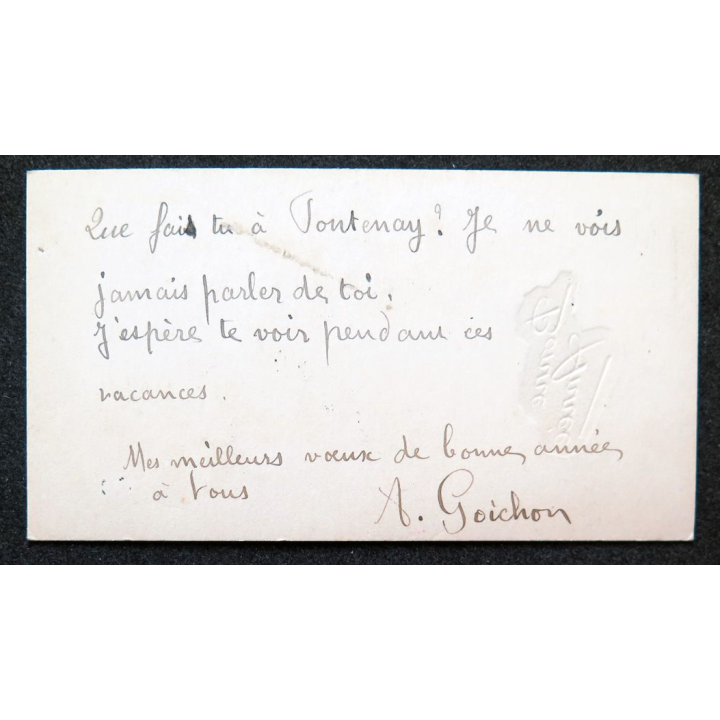 Que fais tu à Fontenay? Je ne vois
jamais parler de toi.
J'espère te voir pendant ces
vacances.
Mes meilleurs vœux de bonne année
à tous
A. Goichon
Bonne
Année